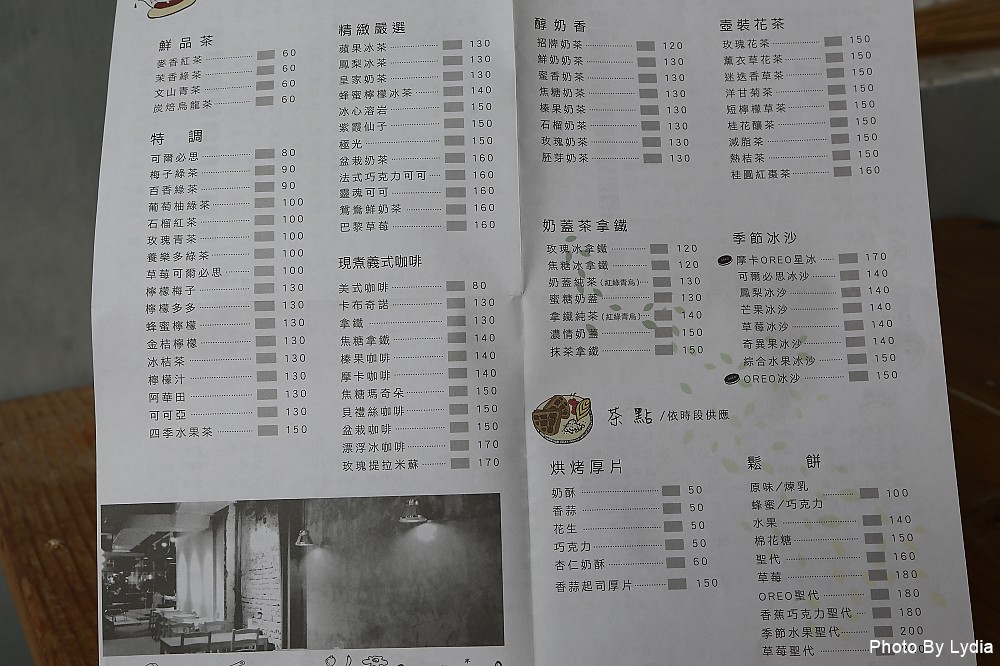 鮮品茶
麥香紅茶 60
茉香綠茶 60
文山青茶 60
炭焙烏龍茶 60
特 調
可爾必思 80
梅子綠茶 90
百香綠茶 90
葡萄柚綠茶 100
石榴紅茶 100
玫瑰青茶 100
養樂多綠茶 100
草莓可爾必思 100
檸檬梅子 130
檸檬多多 130
蜂蜜檸檬 130
金桔檸檬 130
冰桔茶 130
檸檬汁 130
阿華田 130
可可亞 130
四季水果茶 150
精緻嚴選
蘋果冰茶 130
鳳梨冰茶 130
皇家奶茶 130
蜂蜜檸檬冰茶 140
冰心溶岩 150
紫霞仙子 150
極光 150
盆栽奶茶 160
法式巧克力可可 160
靈魂可可 160
鴛鴦鮮奶茶 160
巴黎草莓 160
現煮義式咖啡
美式咖啡 80
卡布奇諾 130
拿鐵 130
焦糖拿鐵 140
榛果咖啡 140
摩卡咖啡 140
焦糖瑪奇朵 150
貝禮絲咖啡 150
盆栽咖啡 150
漂浮冰咖啡 170
玫瑰提拉米蘇 170
醇奶香
招牌奶茶 120
鮮奶奶茶 130
蜜香奶茶 130
焦糖奶茶 130
榛果奶茶 130
石榴奶茶 130
玫瑰奶茶 130
胚芽奶茶 130
奶蓋茶拿鐵
玫瑰冰拿鐵 120
焦糖冰拿鐵 120
奶蓋純茶(紅綠青烏) 130
蜜糖奶蓋 130
拿鐵純茶(紅綠青烏) 140
濃情奶蓋 150
抹茶拿鐵 150
壺裝花茶
玫瑰花茶 150
薰衣草花茶 150
迷迭香草茶 150
洋甘菊茶 150
短檸檬草茶 150
桂花釀茶 150
減脂茶 150
熱桔茶 150
桂圓紅棗茶 160
季節冰沙
摩卡OREO星冰 170
可爾必思冰沙 140
鳳梨冰沙 140
芒果冰沙 140
草莓冰沙 140
奇異果冰沙 140
綜合水果冰沙 150
OREO冰沙 150
茶點/依時段供應
烘烤厚片
奶酥 50
香蒜 50
花生 50
巧克力 50
杏仁奶酥 60
香蒜起司厚片 150
鬆 餅
原味/煉乳
蜂蜜/巧克力 100
水果 140
棉花糖 150
聖代 160
草莓 180
OREO聖代 180
香蕉巧克力聖代 180
季節水果聖代 200
草莓聖代
Photo By Lydia